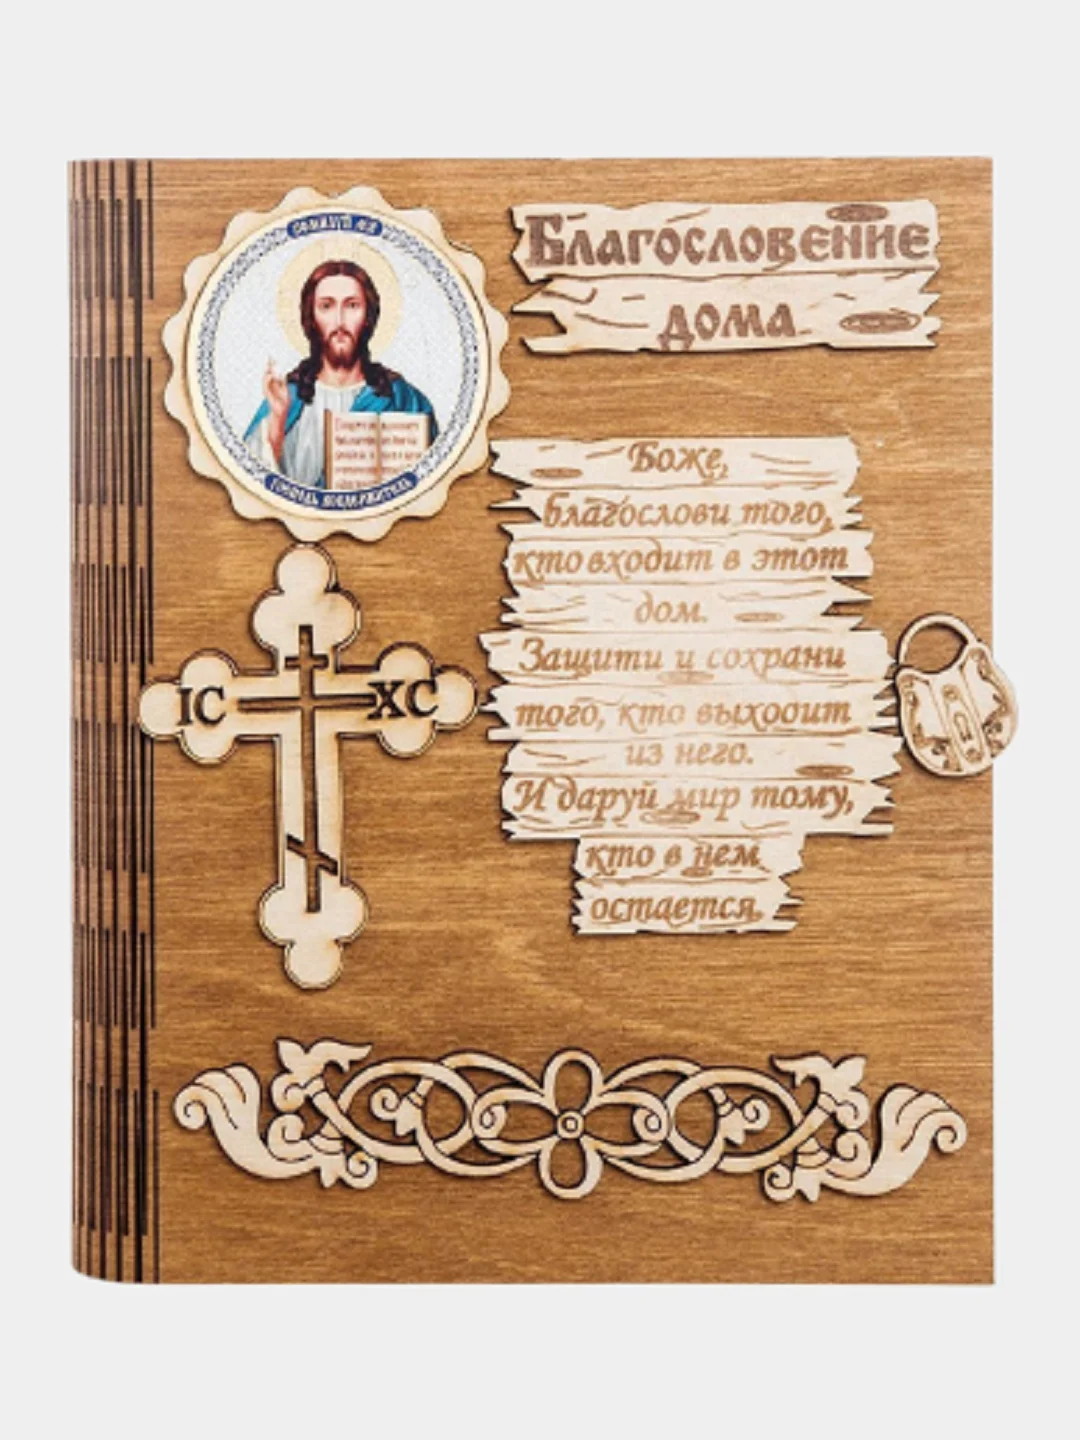 ПОМИЛУЙ МЯ
ГОСПОДЬ ВСЕДЕРЖИТЕЛЬ
Благословение
дома
Боже,
благослови того,
кто входит в этот
дом.
Защити и сохрани
того, кто выходит
из него.
И даруй мир тому,
кто в нем
остается.
IC XC